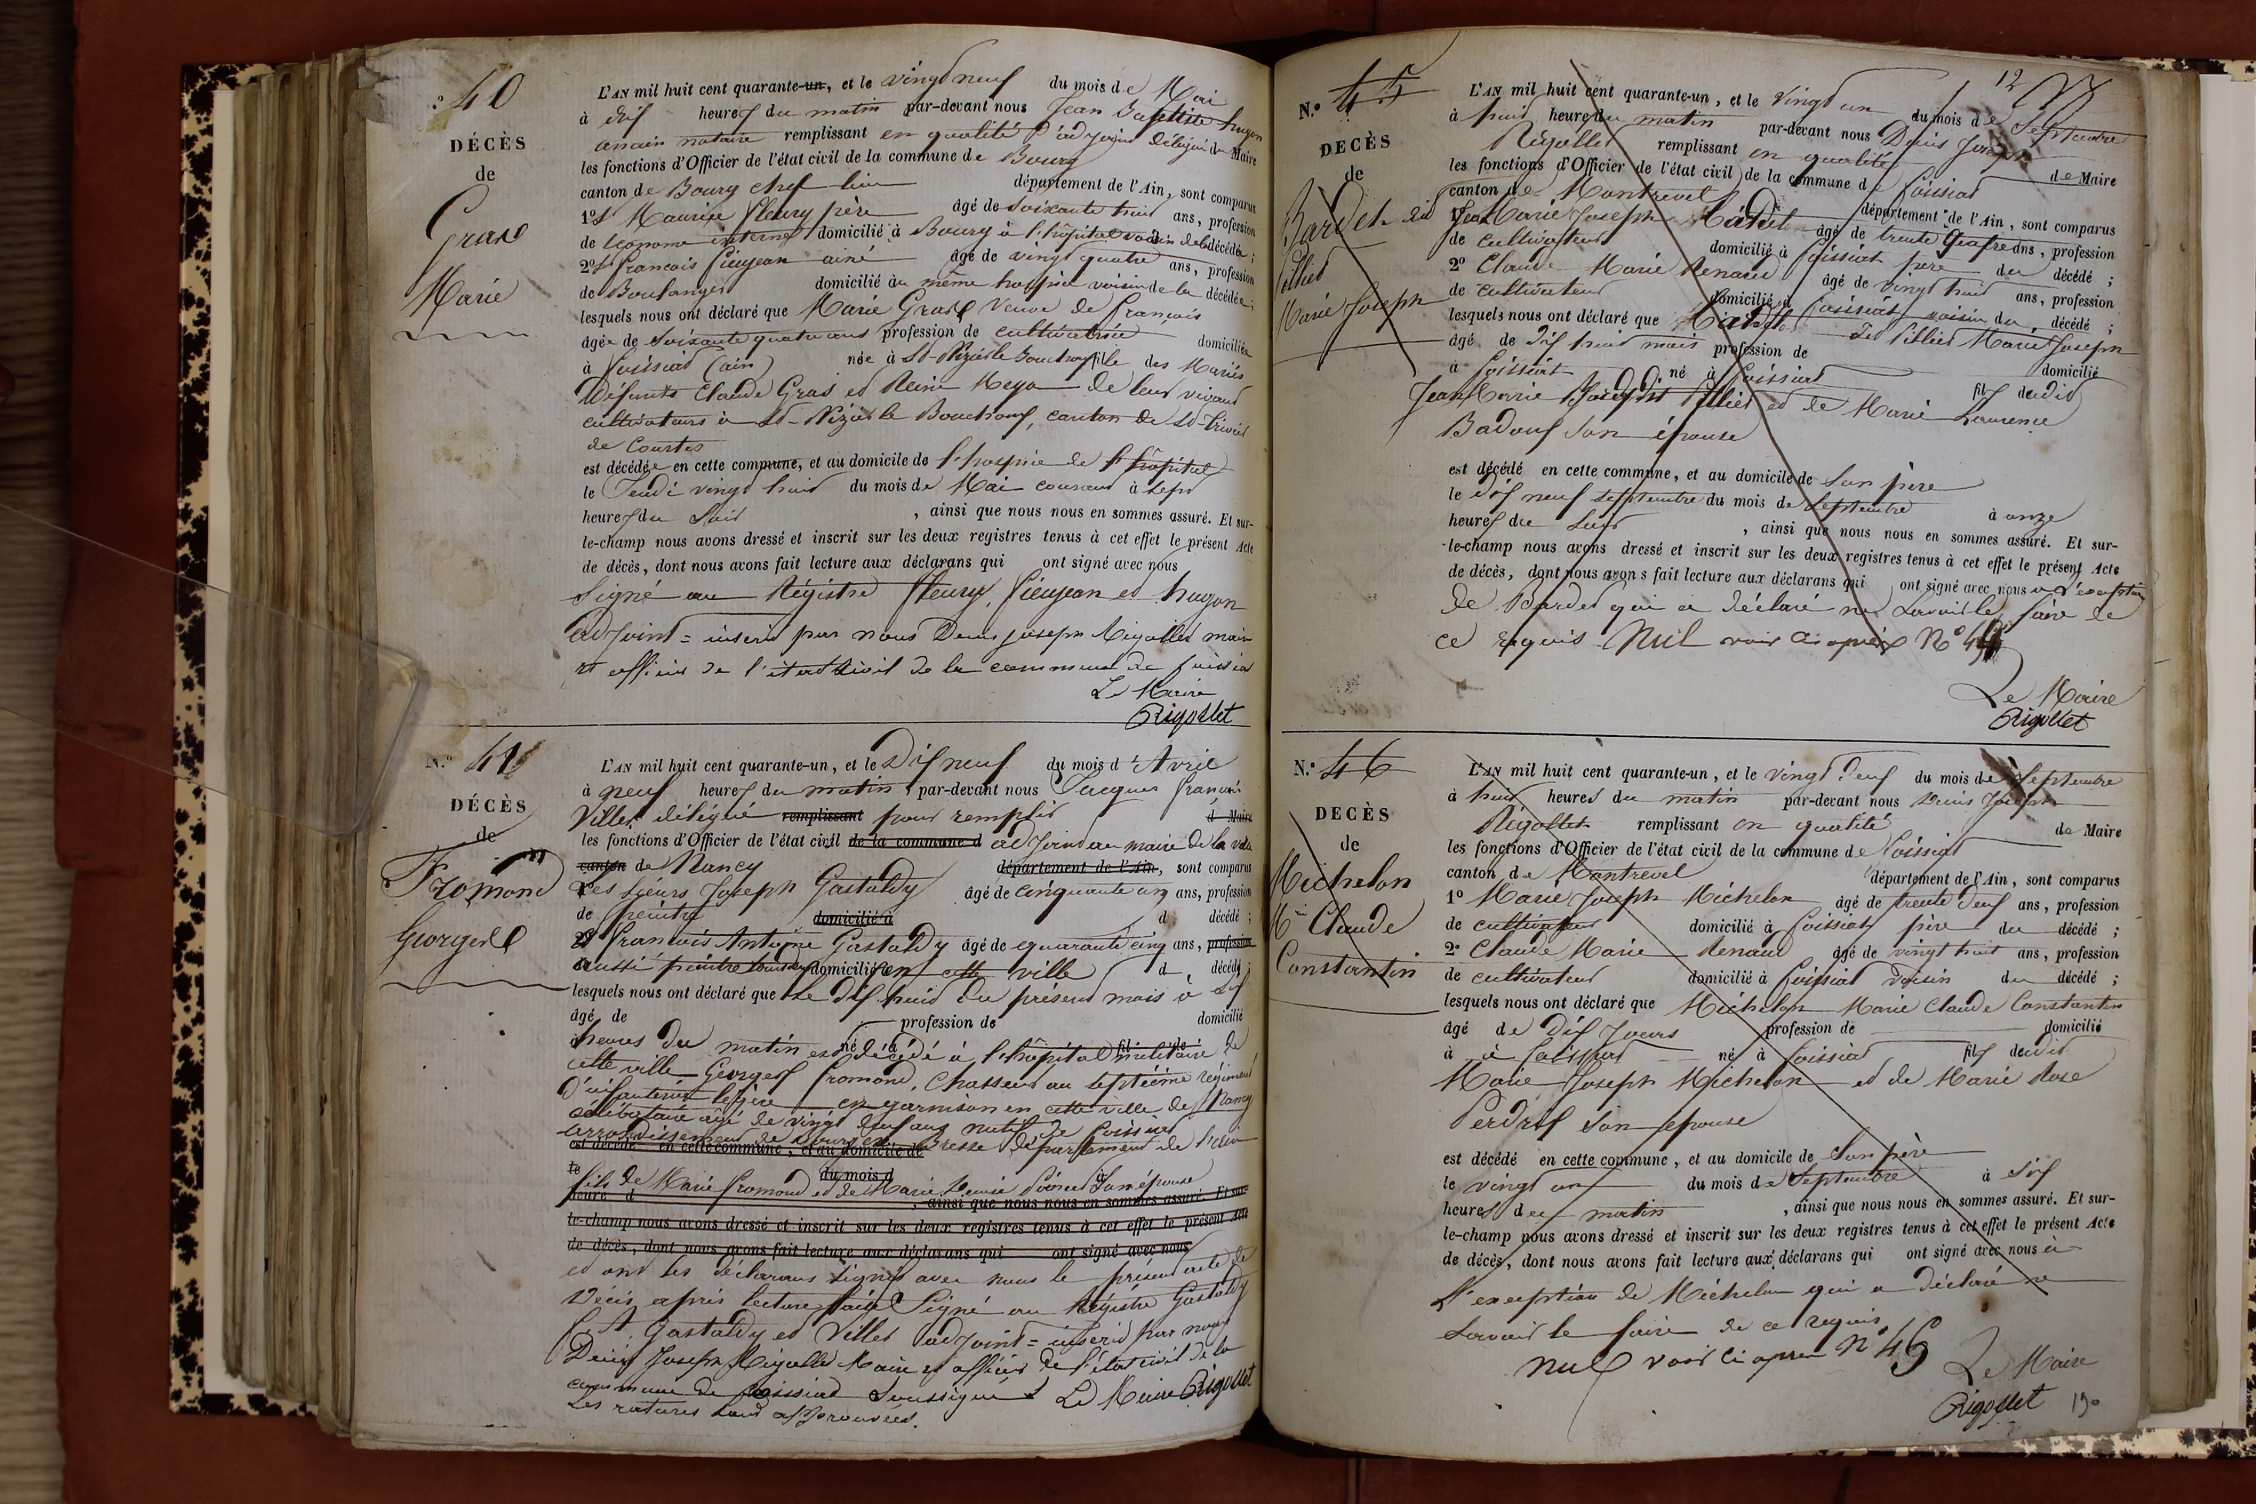 N.º 40
DÉCÈS
de
Gras
Marie
L'AN mil huit cent quarante-un, et le vingt neuf du mois de Mai
à dix heures du matin par-devant nous Jean Baptiste hugon
ancien notaire remplissant en qualité d'adjoint délégué du Maire
les fonctions d'Officier de l'état civil de la commune de Bourg
canton de Bourg chef lieu département de l'Ain, sont comparus
1º S. Maurice fleury père âgé de soixante huit ans, profession
de économe interne domicilié à Bourg à l'hôpital voisin de la décédée ;
2º S. francois fieujean ainé âgé de vingt quatre ans, profession
de Boulanger domicilié au même hospice voisin de la décédée ;
lesquels nous ont déclaré que Marie Gras veuve de françois
âgée de soixante quatre ans profession de cultivatrice domiciliée
à foissiat (ain) née à St-Nizier le Bouchoux fille des Mariés
défunts Claude Gras et Reine Meya de leur vivant
cultivateurs à St-Nizier le Bouchoux, canton de St-Trivier
de Courtes
est décédée en cette commune, et au domicile de l'hospice de l'hôpital
le Jeudi vingt huit du mois de Mai courant à sept
heures du soir , ainsi que nous nous en sommes assuré. Et sur-
le-champ nous avons dressé et inscrit sur les deux registres tenus à cet effet le présent Acte
de décès, dont nous avons fait lecture aux déclarans qui ont signé avec nous
Signé au Régistre fleury, fieujean et hugon
adjoint = inscrit par nous Denis joseph Rigollet maire
et officier de l'état civil de la commune de foissiat
Le Maire
Rigollet
N.º 41
DÉCÈS
de
Fromond
Georges
L'AN mil huit cent quarante-un, et le Dix neuf du mois d'Avril
à neuf heures du matin par-devant nous Jacques françois
Villet délégué remplissant pour remplir d Maire
les fonctions d'Officier de l'état civil de la commune d adjoint au maire de la ville
canton de Nancy département de l'Ain, sont comparus
Les sieurs Joseph Gastaldy âgé de cinquante un ans, profession
de peintre domicilié à d décédé ;
2º francois Antoine Gastaldy âgé de quarante cinq ans, profession
aussi peintre tous deux domiciliés en cette ville d décédé ;
lesquels nous ont déclaré que le dix huit du présent mois à dix
âgé de profession de domicilié
heures du matin est décédé à l'hôpital militaire de
cette ville Georges fromond, Chasseur au septième régiment
d'infanterie légère en garnison en cette ville de Nancy
célibataire âgé de vingt deux ans natif de foissiat
arrondissement de Bourg en Bresse département de l'ain
est décédé en cette commune, et au domicile de
le du mois d à
fils de Marie fromond et de Marie son épouse
heure d , ainsi que nous nous en sommes assuré. Et sur-
le-champ nous avons dressé et inscrit sur les deux registres tenus à cet effet le présent Acte
de décès, dont nous avons fait lecture aux déclarans qui ont signé avec nous
et ont les déclarans signé avec nous le présent acte de
décès après lecture faite Signé au Régistre Gastaldy
f. A. Gastaldy et Villet adjoint = inscrit par nous
Denis Joseph Rigollet Maire et officier de l'état civil de la
commune de foissiat Soussigné Le Maire Rigollet
Les ratures sont approuvées.
12
N.º 45
DÉCÈS
de
Bardet dit
Pillied
Marie Joseph
L'AN mil huit cent quarante-un, et le vingt un du mois de Septembre
à huit heures du matin par-devant nous Denis Joseph
Rigollet remplissant en qualité de Maire
les fonctions d'Officier de l'état civil de la commune de foissiat
canton de Montrevel département de l'Ain, sont comparus
1º Jean Marie Joseph Bardet âgé de trente quatre ans, profession
de cultivateur domicilié à foissiat père du décédé ;
2º Claude Marie Renaud âgé de vingt huit ans, profession
de cultivateur domicilié à foissiat voisin du décédé ;
lesquels nous ont déclaré que Bardet dit Pillied Marie Joseph
âgé de dix huit mois profession de domicilié
à foissiat né à foissiat fils dudit
Jean Marie Bardet dit Pillied et de Marie Laurence
Badoux son épouse
est décédé en cette commune, et au domicile de son père
le dix neuf septembre du mois de septembre à onze
heures du soir , ainsi que nous nous en sommes assuré. Et sur-
le-champ nous avons dressé et inscrit sur les deux registres tenus à cet effet le présent Acte
de décès, dont nous avons fait lecture aux déclarans qui ont signé avec nous à l'exception
de Bardet qui a déclaré ne savoir le faire de
ce requis Nul voir ci après Nº
Le Maire
Rigollet
N.º 46
DÉCÈS
de
Michelon
Mie Claude
Constantin
L'AN mil huit cent quarante-un, et le vingt deux du mois de Septembre
à huit heures du matin par-devant nous Denis Joseph
Rigollet remplissant en qualité de Maire
les fonctions d'Officier de l'état civil de la commune de foissiat
canton de Montrevel département de l'Ain, sont comparus
1º Marie Joseph Michelon âgé de trente deux ans, profession
de cultivateur domicilié à foissiat père du décédé ;
2º Claude Marie Renaud âgé de vingt huit ans, profession
de cultivateur domicilié à foissiat voisin du décédé ;
lesquels nous ont déclaré que Michelon Marie Claude Constantin
âgé de dix jours profession de domicilié
à à foissiat né à foissiat fils dudit
Marie Joseph Michelon et de Marie Rose
Perdrix son épouse
est décédé en cette commune, et au domicile de son père
le vingt un du mois de Septembre à dix
heures du matin , ainsi que nous nous en sommes assuré. Et sur-
le-champ nous avons dressé et inscrit sur les deux registres tenus à cet effet le présent Acte
de décès, dont nous avons fait lecture aux déclarans qui ont signé avec nous à
l'exception de Michelon qui a déclaré ne
savoir le faire de ce requis
nul voir ci après Nº 46
Le Maire
Rigollet
190